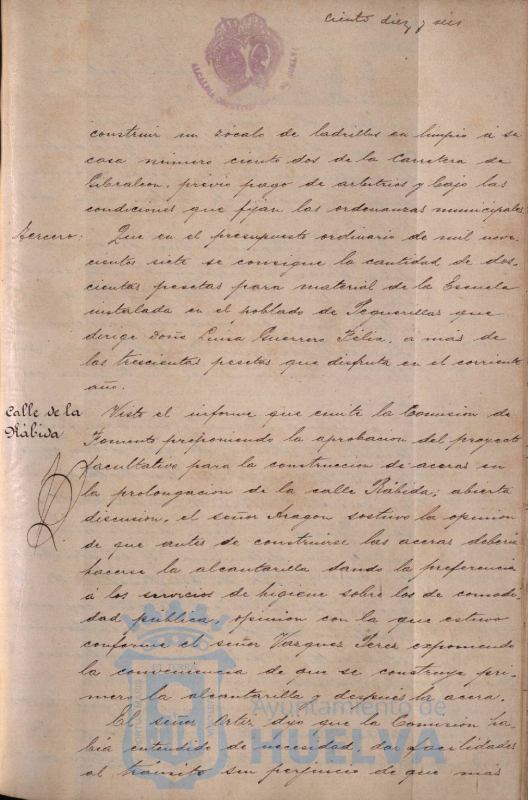 Ciento diez y seis
ALCALDIA HUELVA
construir un zócalo de ladrillos en limpio á su
casa número ciento dos de la Carretera de
Gibraleon, previo pago de arbitrios y bajo las
condiciones que fijan las ordenanzas municipales.
tercero. Que en el presupuesto ordinario de mil nove-
cientos siete se consigne la cantidad de dos-
cientas pesetas para material de la Escuela
instalada en el poblado de Peguerillas que
dirige Doña Luisa Guerrero Félix, á más de
las trescientas pesetas que disfruta en el corriente
año.
Calle de la
Rábida
Visto el informe que emite la Comisión de
Fomento proponiendo la aprobacion del proyecto
facultativo para la construccion de aceras en
la prolongacion de la calle Rábida; abierta
discusion, el señor Aragon sostuvo la opinion
de que antes de construirse las aceras debería
hacerse la alcantarilla dando la preferencia
á los servicios de higiene sobre los de comodi-
dad pública, opinion con la que estuvo
conforme el señor Vazquez Perez exponiendo
la conveniencia de que se construya pri-
mero la alcantarilla y despues la acera.
El señor Ortiz dijo que la Comisión ha-
bía entendido de necesidad, dar facilidades
al tránsito sin perjuicio de que más
Ayuntamiento de
HUELVA